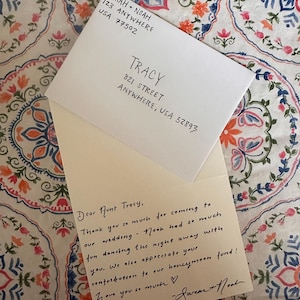 + NOAH
123 ANYWHERE
USA 77502
TRACY
821 STREET
ANYWHERE, USA 52893
Dear Aunt Tracy,
Thank you so much for coming to
our wedding - Noah had so much
fun dancing the night away with
you. We also appreciate your
contribution to our honeymoon fund!
Love you so much ♡
Susan + Noah